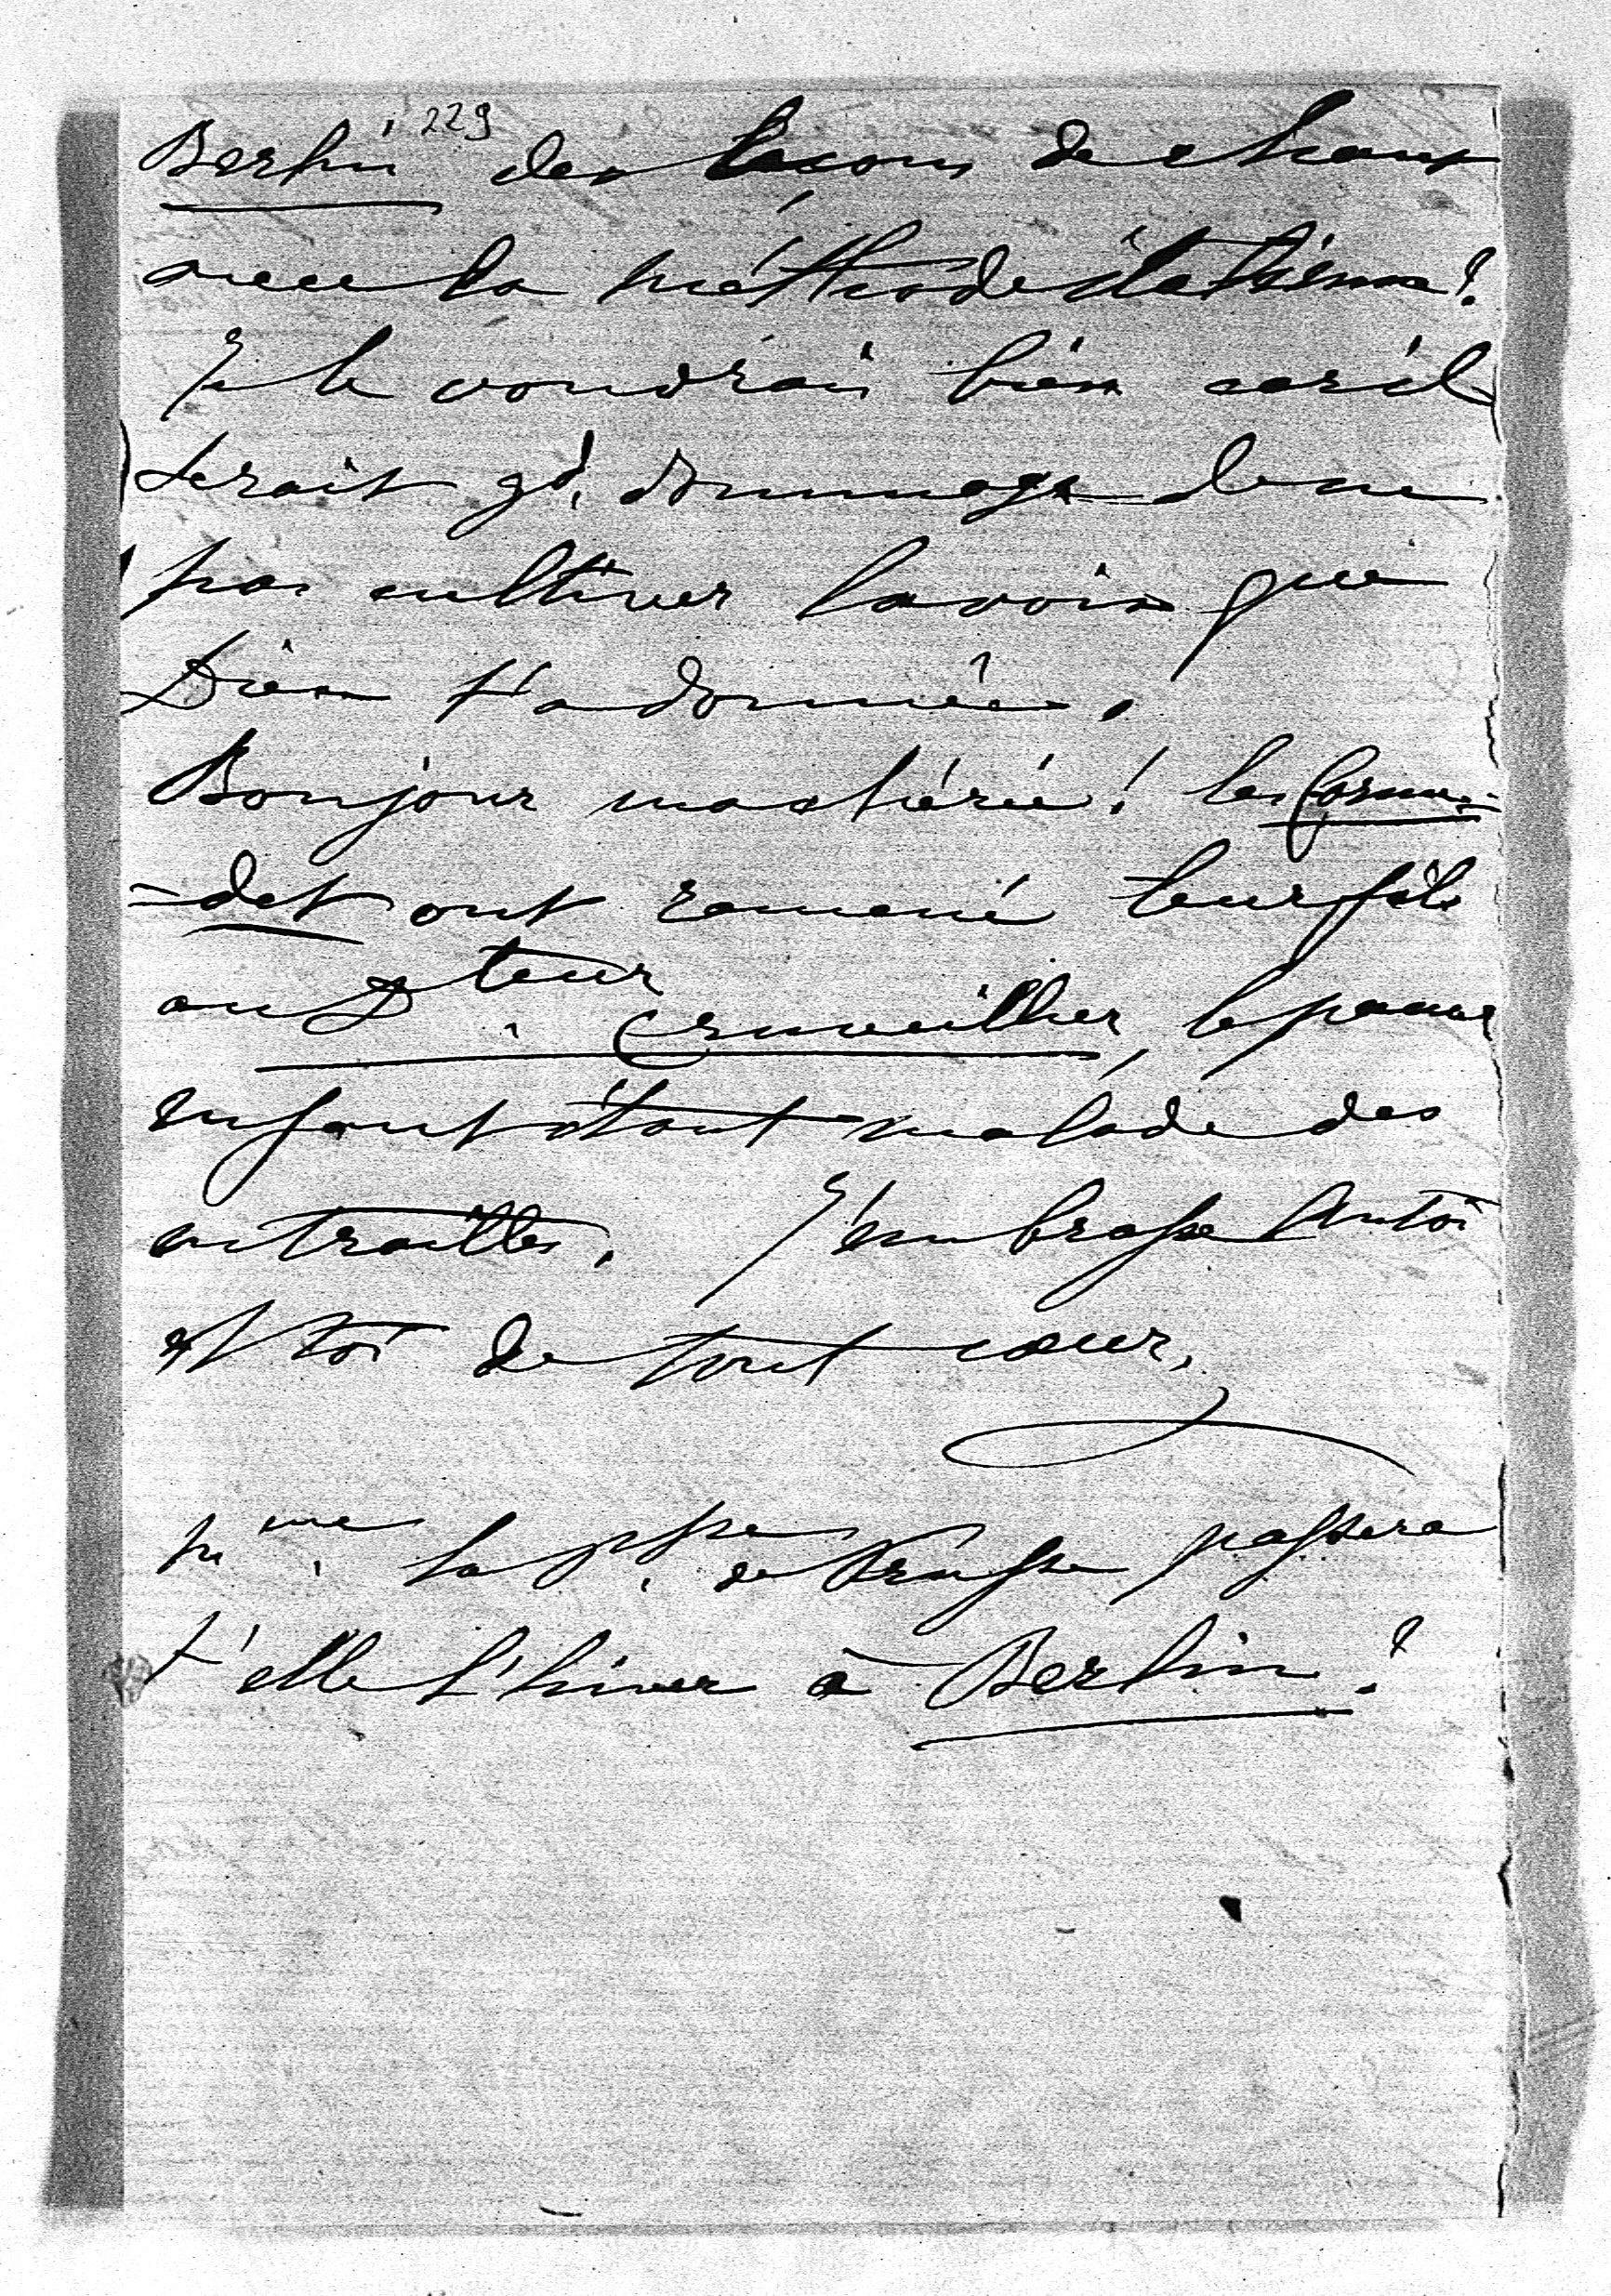 229
Berlin des leçons de chant
avec la méthode italienne?
Je le voudrais bien car il
serait gd. dommage de ne
pas cultiver la voix que
Dieu t'a donnée.
Bonjour ma chérie! les
=det ont ramené leur fils
au Dteur. Cruveilher, le pauvre
enfant étant malade des
entrailles. J'embrasse Antoi
et toi de tout cœur,
Mme. la Psse. de Prusse passera
t'elle l'hiver à Berlin?